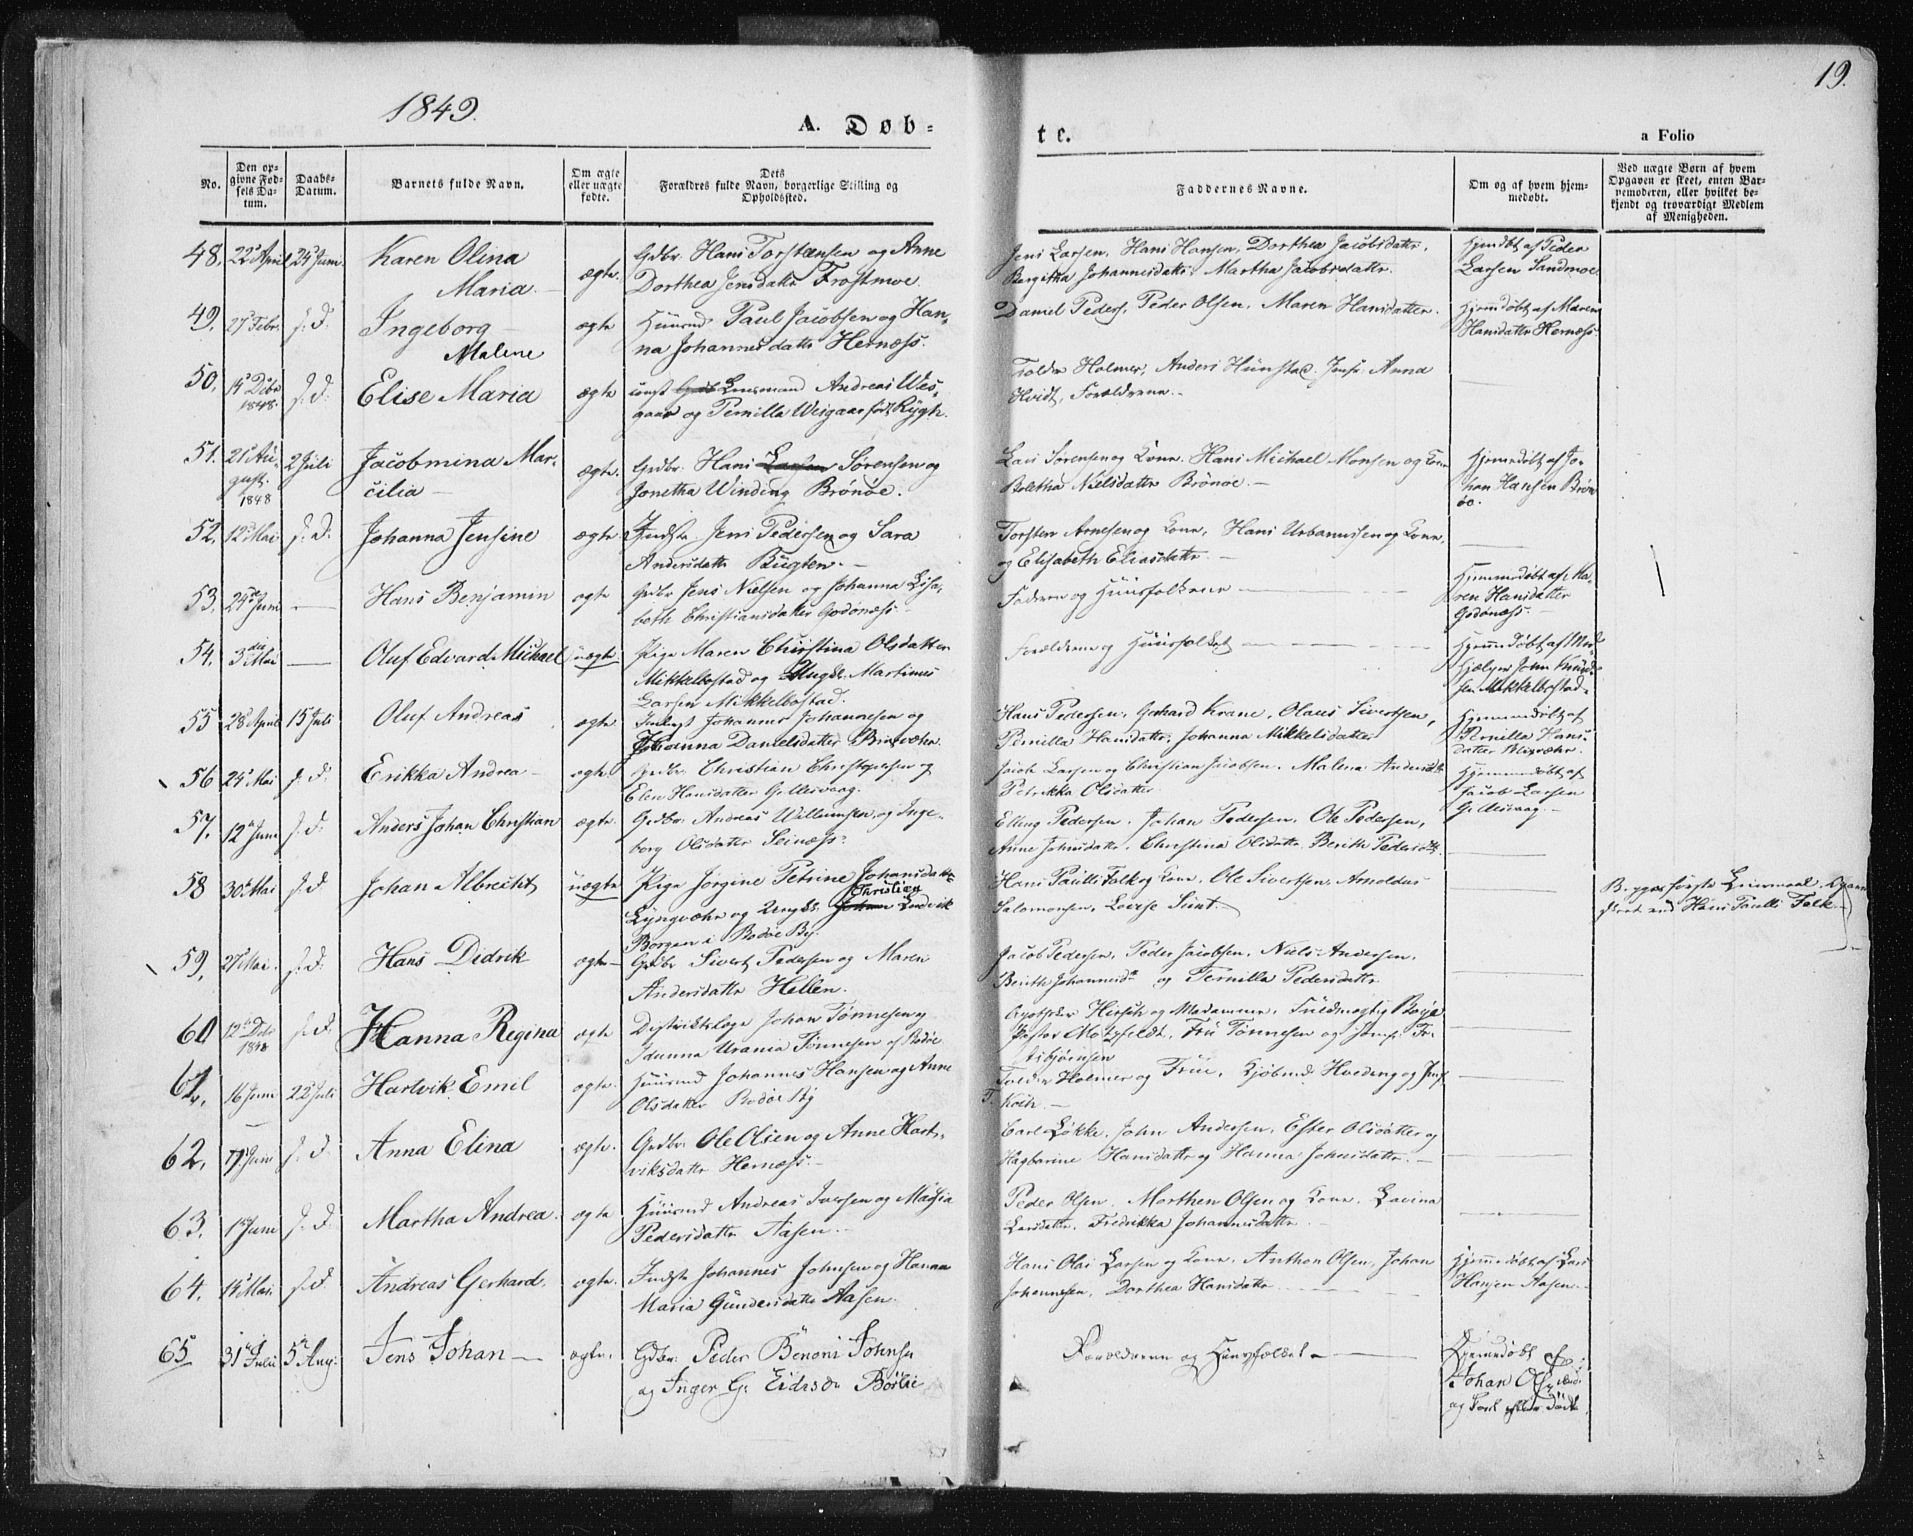 1849.
19.
A. Døb-
te.
a Folio
No.
Den op-
givne Fød-
sels Da-
tum.
Daabs-
Datum.
Barnets fulde Navn.
Om ægte
eller uægte
fødte.
Dets
Forældres fulde Navn, borgerlige Stilling og
Opholdssted.
Faddernes Navne.
Om og af hvem hjem-
medøbt.
Ved uægte Børn af hvem
Opgaven er skeet, enten Bar-
nemoderen, eller hvilket be-
kjendt og troværdigt Medlem
af Menigheden.
48. 22 April 24 Juni Karen Olina
Maria ægte. Grdbr. Hans Torstensen og Anne
Dorthea Jensdatter Frostmoe.
Jens Larsen, Hans Hansen, Dorthea Jacobsdatter,
Bergitha Johannesdatter, Martha Jacobsdatter.
Hjemdøbt af Peder
Larsen Sandmoe
49. 27 Febr. s. D. Ingeborg
Malene ægte Huusmd Paul Jacobsen og Han-
na Johannesdatter Hernæss.
Daniel Peders, Peder Olsen, Maren Hansdatter.
Hjemmedøbt af Maren
Hansdatter Hernæss
50. 14 Debr
1848. s. D. Elise Maria ægte const Lensmand Andreas Wes-
gaar og Pernilla Weigaar født Rygh.
Holmer, Anders Hunstad, Jomfr. Anna
Hvidt, Forældrene.
51. 21 Au-
gust.
1848 2 Juli Jacobmina Mar-
cilia ægte. Grdbr. Hans Larsen Sørensen og
Jonetha Winding Brønøe.
Lars Sørensen og Kone, Hans Michael Monsen og Kone
Boletha Nielsdatter Brønøe.
Hjemmedøbt af Jo-
han Hansen Brøn-
øe.
52. 12 Mai s. D. Johanna Jensine ægte Indst. Jens Pedersen og Sara
Andersdatter Bugten.
Torsten Arnesen og Kone, Hans Urbanussen og Kone,
og Elisabeth Eliasdatter
53. 24 Juni Hans Benjamin ægte Grdbr Jens Nielsen og Johanna Elisa-
beth Christiansdatter Godønæss
Faderen og Huusfolkene
Hjemmedøbt af Ka-
ren Hansdatter
Godønæss.
54. 3die Mai Oluf Edvard Michael uægte Pige Maren Christina Olsdatter
Mikkelbostad og Ungk. Martinus
Larsen Mikkelbostad.
Forældrene og Huusfolket
Hjemmedøbt af Med-
hjælper John Knud-
sen Mikkelbostad.
55 28 April 15 Juli Oluf Andreas ægte Johannes Johannesen og
Johanna Danielsdatter Blixvæhr.
Hans Pedersen, Gerhard Krane, Olaus Sivertsen,
Pernilla Hansdatter, Johanna Mikkelsdatter
Hjemmedøbt af
Pernilla Hans-
datter Blixvæhr.
56 24 Mai s. D. Erikka Andrea ægte Grdbr. Christian Christophersen og
Elen Hansdatter Gillesvaag.
Jacob Larsen og Christian Jacobsen, Malena Andersdtr
Petrikka Olsdatter
Hjemmedøbt af
Jacob Larsen
Gillesvaag.
57. 12 Juni s. D. Anders Johan Christian ægte Grdbr. Andreas Willumsen og Inge-
borg Olsdatter Seinæss.
Elling Pedersen, Johan Pedersen, Ole Pedersen,
Anne Johnsdatter, Christina Olsdatter, Berith Pedersdtr.
58 30 Mai s. D. Johan Albrecht uægte Pige Jørgine Petrine Johansdatter
Lyngvæhr og Ungk. Johan Christian Ludvik
Borgen i Bodøe By.
Hans Paulli Falk og Kone, Ole Sivertsen, Arnoldus
Salomonsen, Lovise Seint.
Begges første Leiermaal. Opgav
skeet ved Hans Paulli Falk
59. 27 Mai. s. D. Hans Didrik ægte Grdbr Sivert Pedersen og Maren
Andersdatter Hellen.
Jacob Pedersen, Peder Jacobsen, Niels Andersen,
Berith Johannesdtr og Pernilla Pedersdatter
60 12 Debr
1848 s. D. Hanna Regina ægte Distriktslæge Johan Tønnesen og
Idunna Urania Tønnesen af Bodøe
Apotheker Hirsch og Madamme, Fuldmægtig Boije
Pastor Motzfeldt, Fru Tønnesen og Jomfr. Fr.
Asbjørnsen
61. 16 Juni 22 Juli Hartvik Emil ægte. Huusmd Johannes Hansen og Anne
Olsdatter Bodøe By
Holmer og Frue, Kjøbmd. Hveding og Jmf.
T. Koch.
62. 9 Juni s. D. Anna Elina ægte. Grdbr. Ole Olsen og Anne Hart-
viksdatter Hernæss.
Carl Løkke, John Andersen, Ester Olsdatter og
Hagbarine Hansdatter og Hanna Johnsdatter.
63. 1 Juni s. D. Martha Andrea ægte Huusmd Andreas Iversen og Marsia
Pedersdatter Aasen.
Peder Olsen, Morthen Olsen og Kone, Lavina
Larsdatter, Fredrikka Johannesdatter.
64. 14 Mai. s. D. Andreas Gerhard. ægte. Indst Johannes Johnsen og Hanna
Maria Gundersdatter Aasen.
Hans Olai Larsen og Kone, Anthon Olsen, Johan
Johannesen, Dorthea Hansdatter
Hjemmedøbt af Lars
Hansen Aasen.
65 31 Julii 5 Aug. Jens Johan ægte. Gdbr. Peder Benoni Johnsen
og Inger G. Eidisdr Børlie
Forældrene og Huusfolket.
Hjemmedøbt af
Johan Ols
og Død